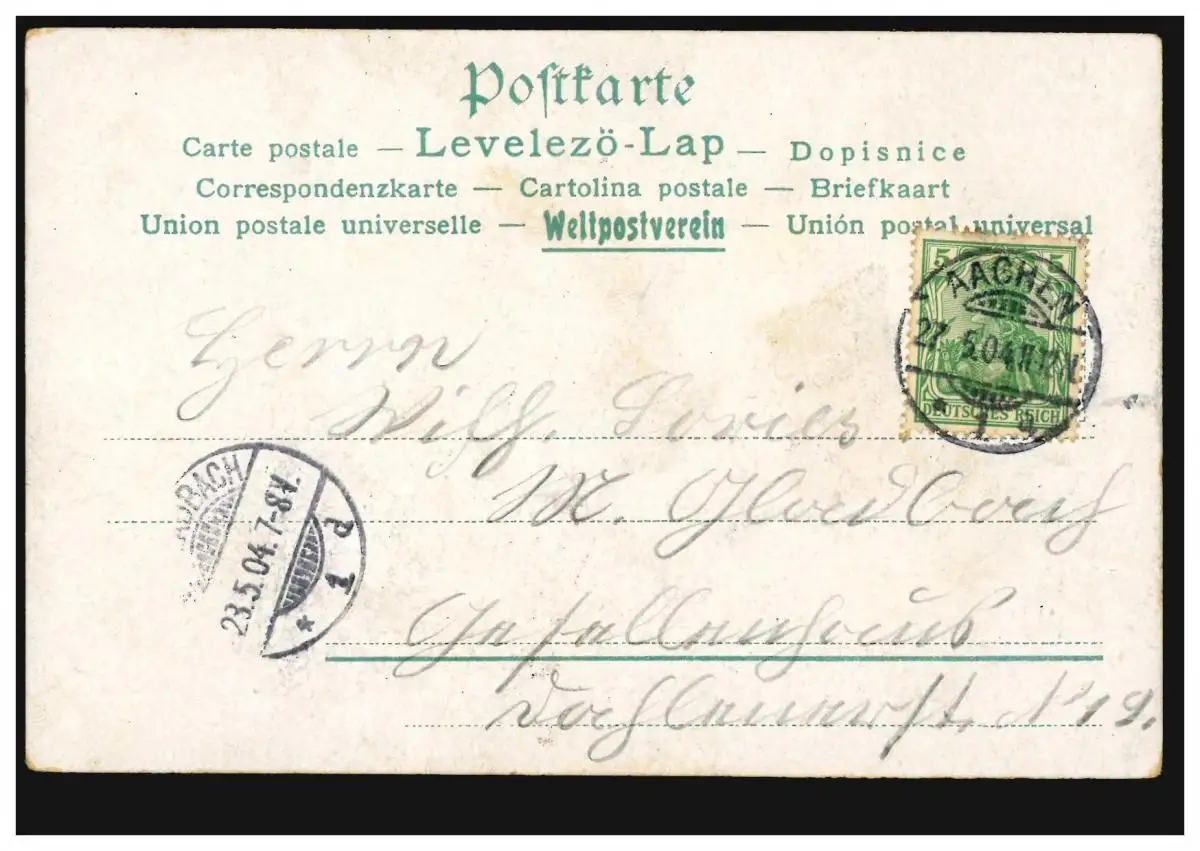 Postkarte
Carte postale — Levelező-Lap — Dopisnice
Correspondenzkarte — Cartolina postale — Briefkaart
Union postale universelle — Weltpostverein — Unión postal universal
5 5
AACHEN
27.5.04.
* 1
DEUTSCHES REICH
Herrn
Wilh.
M. Gladbach
Gesellenhaus
Dahlenerst. No 19.
DBACH
23.5.04.7-8V.
* 1 d